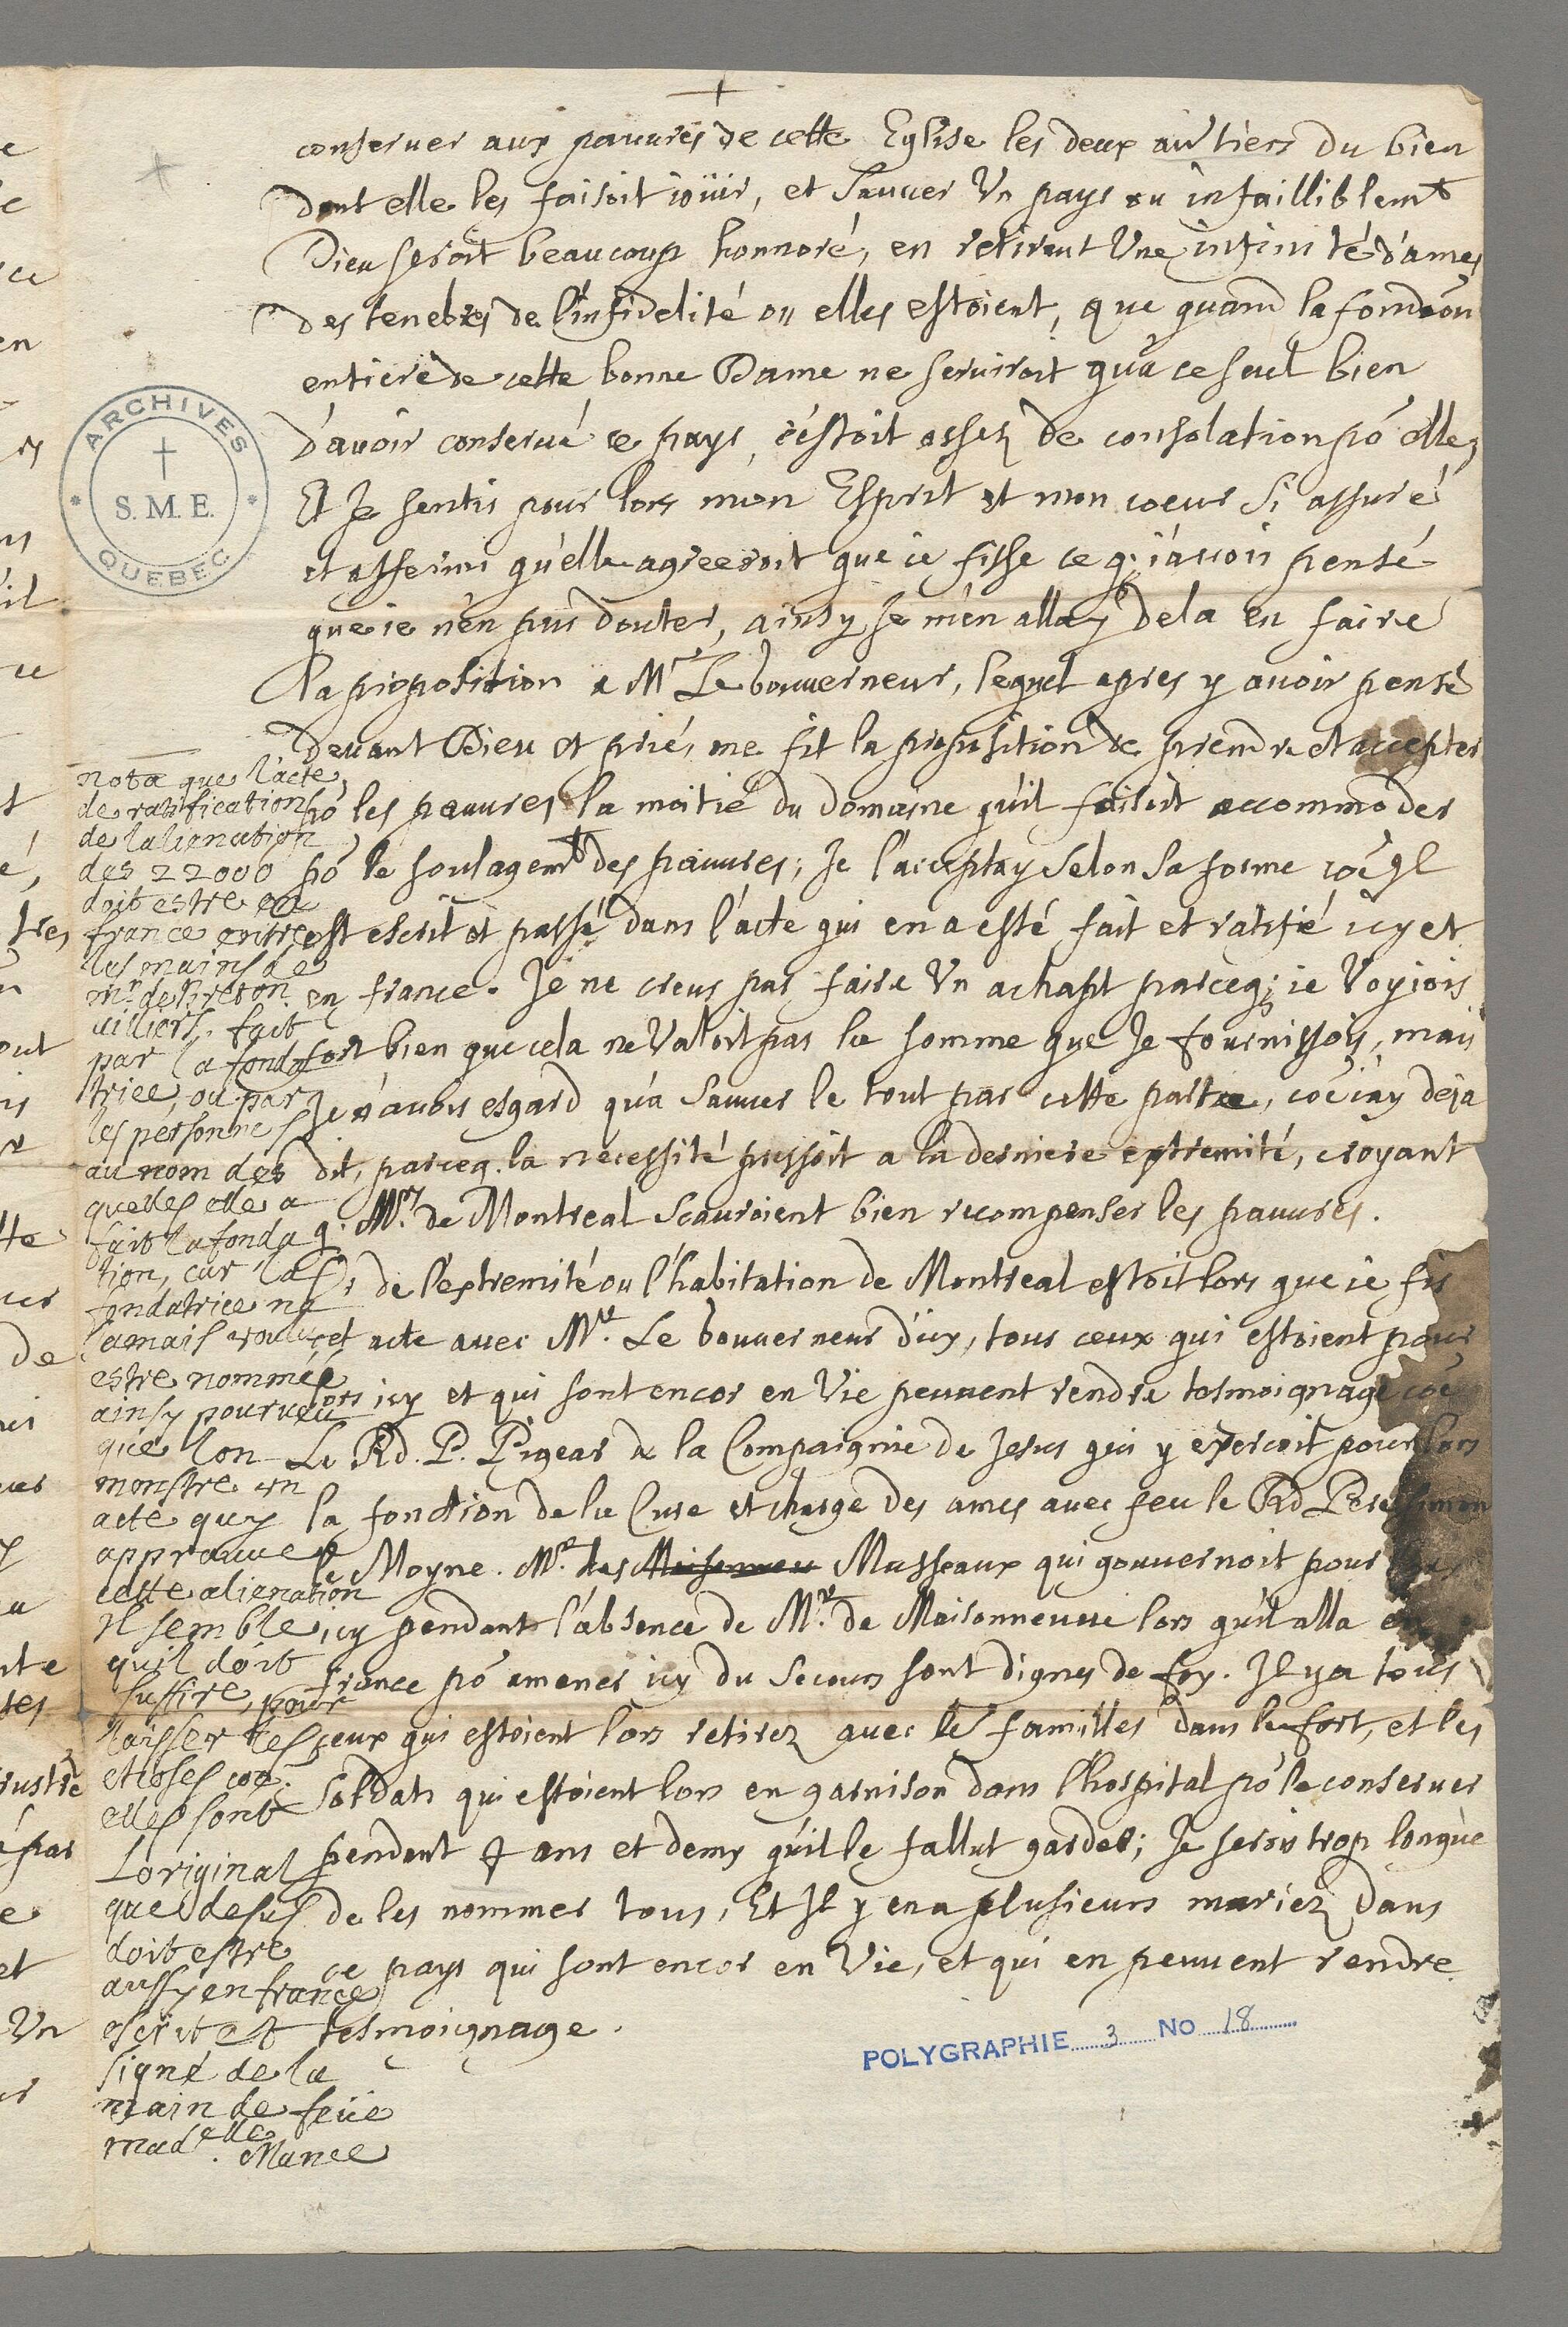 conseruer aux pauures de cette Eglise les deux au tiers du bien
dont elle les faisoit ioüir, et sauuer Vn pays ou infailliblemt
Dieu seroit beaucoup honnoré, en retirant Vne infinité d'ames
des tenebres de l'infidelité ou elles estoient, que quand la fondaon
entiere de cette bonne Dame ne seruiroit qu'a ce seul bien
d'auoir conserué ce pays, c'estoit assez de consolation po elle,
Et Je sentis pour lors mon Esprit et mon coeur si assuré
et affermi qu'elle agreeroit que ie fisse ce q; i'auois pensé
que ie n'en pus douter, ainsy Je m'en allay dela en faire
la proposition a Mr Le Gouuerneur, lequel apres y auoir pensé
deuant Dieu et prié, me fit la proposition de prendre et accepter
po les pauures la moitié du domaine qu'il faisoit accommoder
po le soulagemt des pauures; Je l'acceptay selon sa forme coe Il
est escrit et passé dans l'acte qui en a esté fait et ratifié icy et
en france. Je ne creus pas faire Vn achapt parceq; ie Voyiois
fort bien que cela ne Valoit pas la somme que Je fournissois, mais
Je n'auois esgard qu'a sauuer le tout par cette partie, coe i'ay deja
dit, parceq. la necessité pressoit a la derniere extremité, croyant
q. Mrs de Montreal scauroient bien recompenser les pauures.
de l'extremité ou l'habitation de Montreal estoit lors que ie fis
cet acte auec Mr. Le Gouuerneur d'icy, tous ceux qui estoient pour
lors icy et qui sont encor en Vie peuuent rendre tesmoignage coe
Le Rd. P. Pigear de la Compaignie de Jesus qui y exercoit pour lors
la fonction de la Cure et charge des ames auec feu le Rd Pere Simon
le Moyne. Mr. des Musseaux qui gouuernoit pour lors
icy pendant l'absence de Mr. de Maisonneuue lors qu'il alla en
france po amener icy du secours sont dignes de foy. Il y a tous
ceux qui estoient lors retirez auec les familles dans le fort, et les
soldats qui estoient lors en garnison dans l'hospital po le conseruer
pendant 4 ans et demy qu'il le fallut garder; Je serois trop longue
de les nommer tous, Et Il y en a plusieurs mariez dans
ce pays qui sont encor en Vie, et qui en peuuent rendre
tesmoignage.
nota que l'acte
de ratification
de lalienation
des 22000
doit estre en
france entre
les mains de
mr. de breton
uilliers. fait
par la fonda
trice, ou par
les personnes
au nom des
quelles elle a
fait la fonda
tion, car la
fondatrice na
iamais voulu
estre nommée
ainsy pourueu
que lon
monstre un
acte quy
approuue
cette alienation
Il semble
quil doit
suffire, pour
laisser les
choses coe
elles sont
L'original
que desus
doit estre
aussy en france
escrit et
signé de la
main de feüe
madelle. Mance
ARCHIVES
S. M. E.
QUEBEC
POLYGRAPHIE 3 No 18